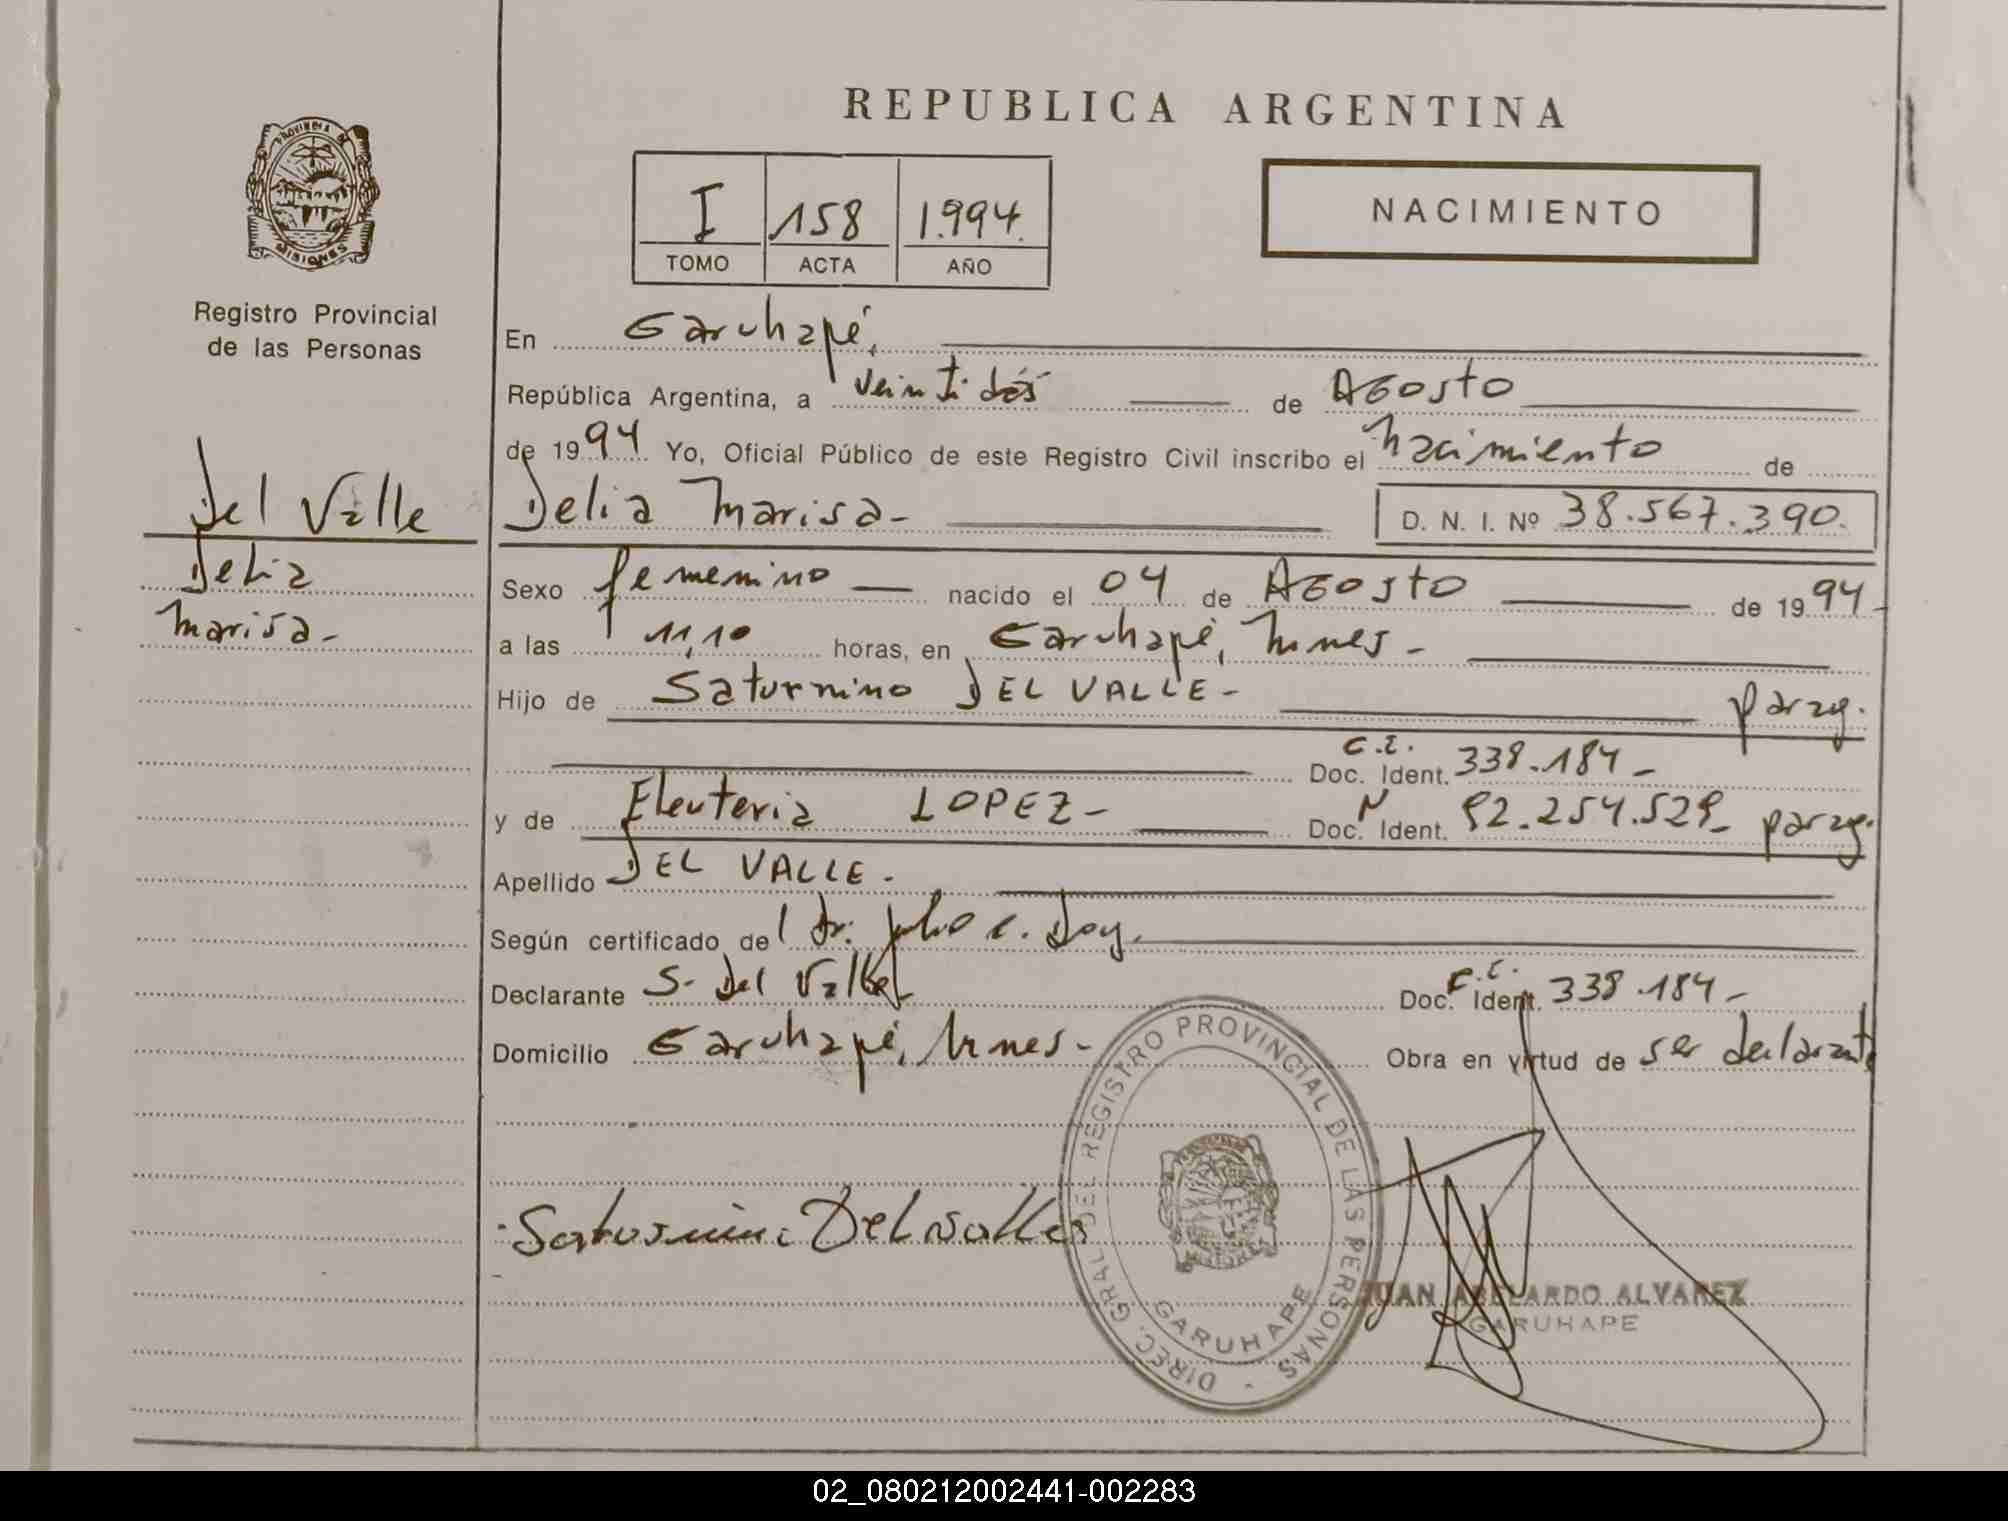 REPUBLICA ARGENTINA
PROVINCIA DE
MISIONES
Registro Provincial
de las Personas
Del Valle
Delia
Marisa-
I 158 1.994.
TOMO ACTA AÑO
NACIMIENTO
En Garuhapé,
República Argentina, a veintidós de Agosto
de 1994 Yo, Oficial Público de este Registro Civil inscribo el nacimiento de
Delia Marisa- D. N. I. Nº 38.567.390.
Sexo femenino nacido el 04 de Agosto de 1994-
a las 11,10 horas, en Garuhapé, Mnes-
Hijo de Saturnino DEL VALLE- parag.
C.I.
Doc. Ident. 338.184-
y de Eleuteria LOPEZ- Doc. Ident. 92.254.529- parag.
Apellido DEL VALLE.
Según certificado de l Dr. Julio C. Doy.
Declarante S. Del Valle- Doc. Ident. C.I. 338.184-
Domicilio Garuhapé, Mnes- Obra en virtud de ser declarante
Saturnino Del Valle
DIREC. GRAL DEL REGISTRO PROVINCIAL DE LAS PERSONAS -
GARUHAPE
JUAN ABELARDO ALVAREZ
GARUHAPE
02_080212002441-002283